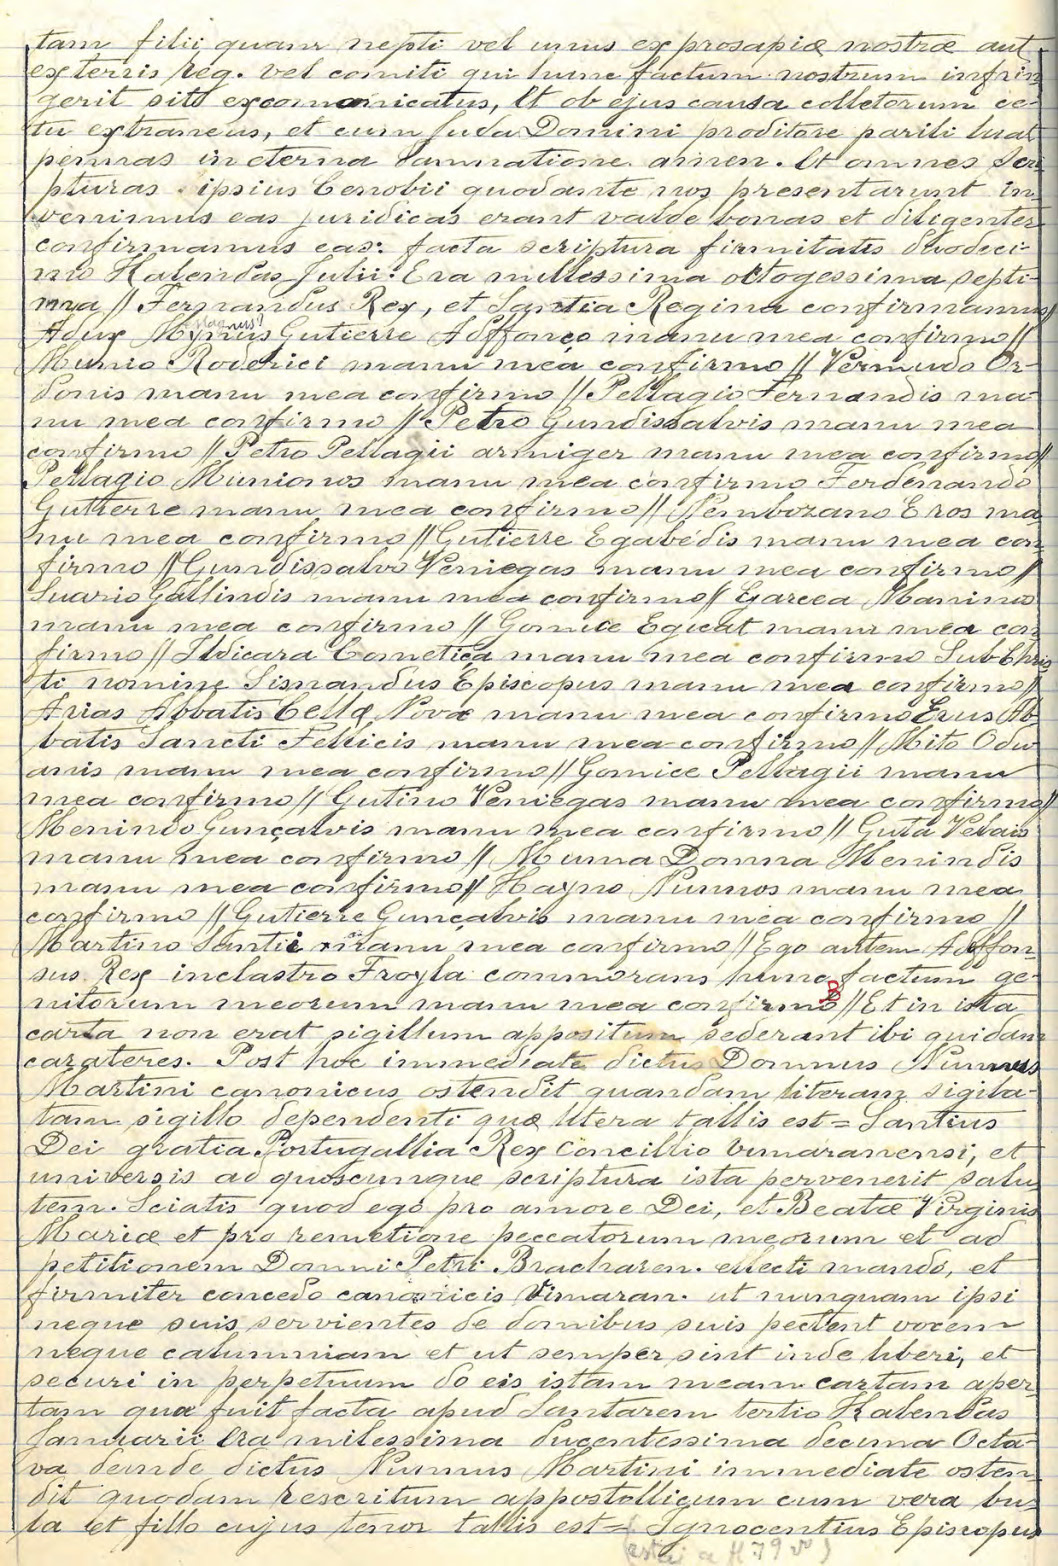 tam filii quam nepti vel unus ex prosapiæ nostræ aut
externis reg. vel comiti qui hunc factum nostrum infrin
gerit sito excomonicatus, Et ob ejus causa colletorum ce-
tu extraneus, et cum Juda Domini proditore pariti luat
pennas in eterna damnatione amen. Et omnes Scri
pturas ipsius Cenobii quodante nos presentarunt in
venimus eas juridicas erant valde bonas et diligenter
confirmamus eas: facta scriptura firmitatis duodeci-
mo Kalendas Julii: Era millessima octogessima septi-
ma // Fernandus Rex, et Santia Regina confirmamus //
Adux Gutierre Adffonço manu mea confirmo //
Munio Roderici manu mea confirmo // Vermudo Or-
donis manu mea confirmo // Pellagio Fernandis ma-
nu mea confirmo // Petro Gundissalvis manu mea
confirmo // Petro Pellagii armiger manu mea confirmo //
Pellagio Munionos manu mea confirmo Ferdenando
Gutterre manu mea confirmo // Nembozano Eros ma
nu mea confirmo // Gutierre Egabedis manu mea con
firmo // Gundissalvo Veniegas manu mea confirmo //
Suario Gallindis manu mea confirmo // Garcea Monino
manu mea confirmo // Gomice Egicat manu mea con
firmo // Ildicara Cometiça manu mea confirmo Sub Chris
ti nomine Sisnandus Episcopus manu mea confirmo //
Arias Abbatis Cellæ Novæ manu mea confirmo Erus Ab
batis Sancti Felicis manu mea confirmo // Mito Odu
anis manu mea confirmo // Gomice Pellagii manu
mea confirmo // Gutino Veniegas manu mea confirmo //
Menindo Gunçalvis manu mea confirmo // Guta Velais
manu mea confirmo // Muma Domna Menindis
manu mea confirmo // Hayno Nunnos manu mea
confirmo // Gutierre Gunçalvis manu mea confirmo //
Martino Santii manu mea confirmo // Ego autem Adffon
sus Rex inclastro Froyla commorans hunc factum ge-
nitorum meorum manu mea confirmo // Et in ista
carta non erat sigillum appositum sederant ibi quidam
carateres. Post hoc immediate dictus Domnus Nunnus
Martini canonicus ostendit quandam literam sigila-
tam sigillo dependenti quæ litera tallis est = Santius
Dei gratia Portugallia Rex Concillio vimaranensi, et
universis ad quoscumque scriptura ista pervenerit salu
tem. Sciatis quod ego pro amore Dei, et Beatæ Virginis
Mariæ et pro remetione peccatorum meorum et ad
petitionem Domni Petri Bracharen. ellecti mando, et
firmiter concedo canonicis Vimaran. ut nunquam ipsi
neque suis servientes de domibus suis pectent vocem
neque calumniam et ut semper sint inde liberi, et
securi in perpetuum do eis istam meam cartam aper-
tam qua fuit facta apud Santarem tertio Kalendas
Januarii Era milessima ducentessima decima Octa-
va deinde dictus Nunnus Martini immediate osten-
dit quodam rescritum appostollicum cum vera bu-
la et fillo cujus tenor tallis est = Ignocentius Episcopus